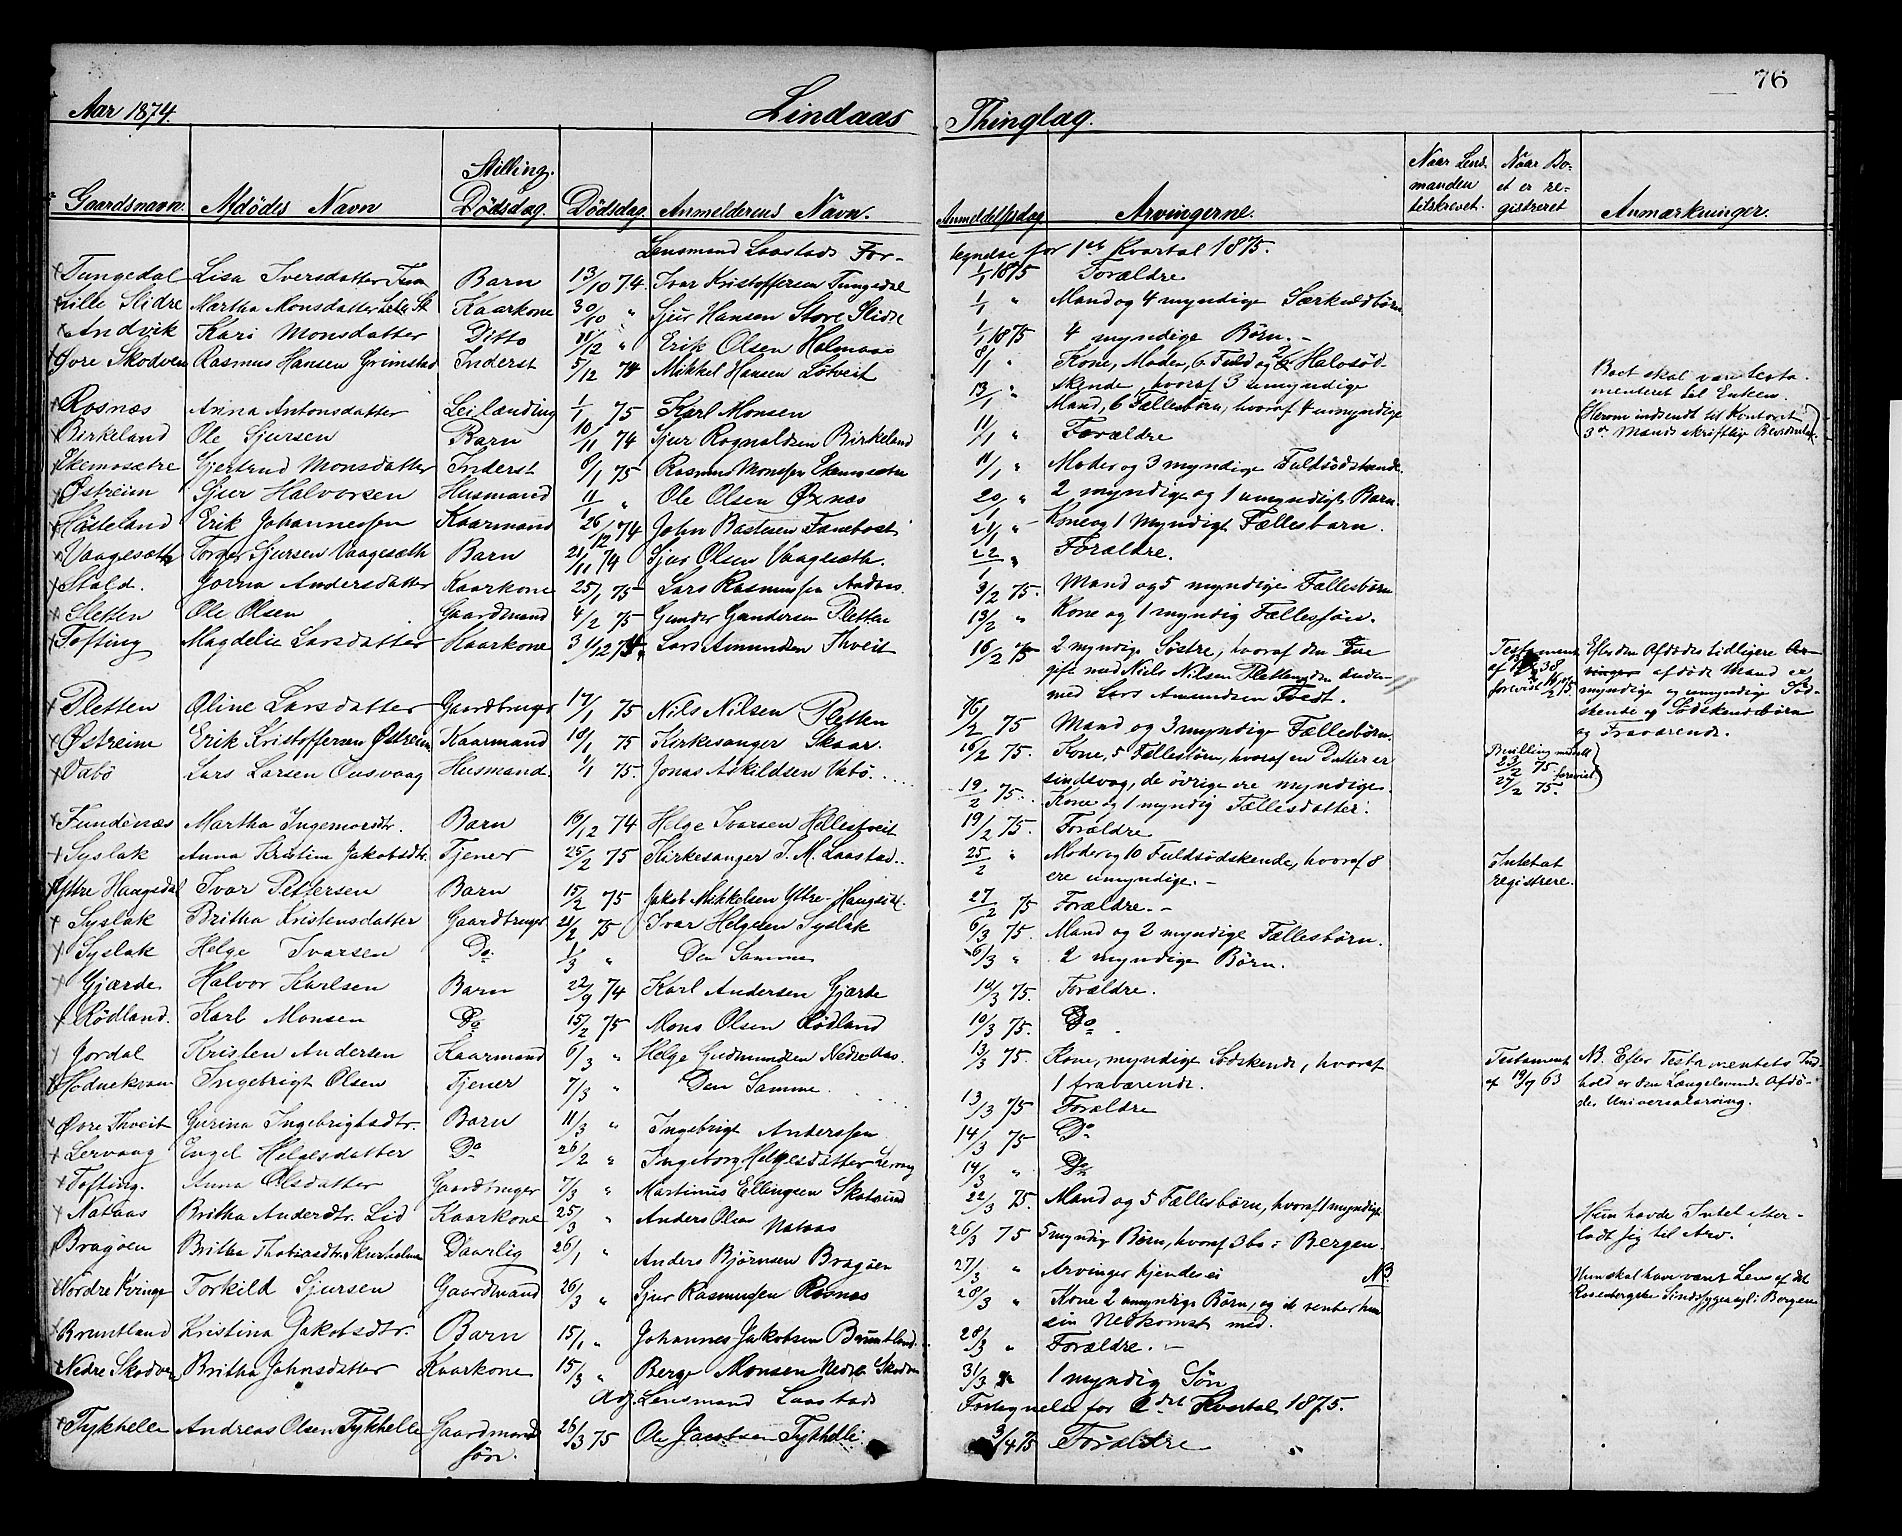 76
Aar 1874. Lindaas Thinglag.
Gaardsnavn. Afdödes Navn Stilling. Dödsdag. Dödsdag. Anmelderens Navn. Anmeldelsesdag Arvingerne. Naar Lens-manden tilskrevet. Naar Bo-et er re-gistreret Anmærkninger.
Lensmand Laastads For- tegnelse for 1ste Kvartal 1875.
Tungedal Lisa Iversdatter Barn 13/10 74 Ivar Kristoffersen Tungedal 1/1 1875 Forældre
Lille Slidre Martha Monsdatter Kaarkone 30/10 " Sjur Hansen Store Slidre 1/1 " Mand og 4 myndige Særkuldbörn
Andvik Kari Monsdatter Ditto 11/12 " Erik Olsen Holmaas 1/1 1875 4 myndige Börn.
Övre Skodven Rasmus Hansen Grimstad Inderst 5/12 74 Mikkel Hansen Lötveit 8/1 " Kone, Moder, 6 Fuld og 2 Halvsöd-
skende, hvoraf 3 umyndige
Boet skal være testa-
menteret til Enken.
(Herom indsendt til Kontoret
3de Mands skriftlig
Rosnæs Anna Antonsdatter Leilænding 1/1 75 Karl Monsen 13/1 " Mand, 6 Fællesbörn, hvoraf 4 umyndige
Birkeland Ole Sjursen Barn 10/11 74 Sjur Rognaldsen Birkeland 11/1 " Forældre
Skemosætre Gjertrud Monsdatter Inderst 6/1 75 Rasmus Monssen 11/1 " Moder og 3 myndige Fuldsödskende.
Østreim Sjur Halvorsen Husmand 11/1 " Ole Olsen Øxnæs 20/1 " 2 myndige og 1 umyndigt Barn.
Hösteland Erik Johannessen Kaarmand 26/12 74 John Bastesen Fanebost 21/1 " Kone og 1 Myndigt Fællesbarn.
Vaagesæth Torger Sjursen Vaagesæth Barn 21/11 74 Sjur Olsen Vaagesæth. 22/1 " Forældre.
Stald. Jorna Andersdatter Kaarkone 25/1 75 Lars Rasmussen Andaas 3/2 75. Mand og 5 myndige Fællesbörn
Sletten Ole Olsen Gaardmand 4/2 75 Gunder Gundersen Pletten 13/2 " Kone og 1 myndig Fællessön.
Tofting Magdeli Larsdatter Kaarkone 31/12 Lars Amundsen Thveit 16/2 75 2 myndige Söstre, hvoraf den Ene
gift med Niels Nilsen Pletten den Anden
med Lars Amundsen Tvedt.
Testament af 38 forevist 16/2 75.
Efter den Afdödes tidligere
afdöde Mand er
myndige og umyndige Söd-
skende og Södskendebörn
og Fraværende.
Pletten Oline Larsdatter Gaardbruger 17/1 75 Nils Nilsen Pletten 16/2 75 Mand og 3 myndige Fællesbörn.
Østreim Erik Kristoffersen Østreim Kaarmand 18/1 75 Kirkesanger Skaar. 16/2 75. Kone, 5 Fællesbörn, hvoraf en Datter er
sindsvag, de övrige ere myndige.
Bevilling meddelt 23/2 75 forevist 27/2 75.
Vabö Lars Larsen Husmand. 1/1 75. Jonas Askildsen Vabö. 19/2 75. Kone og 1 myndig Fællesdatter.
Fundenæs Martha Ingemordtr. Barn 16/12 74 Helge Ivarsen Hellestveit 19/2 75. Forældre
Syslak Anna Kristina Jakobsdtr. Tjener 25/2 75 Kirkesanger J. M. Laastad. 25/2 " Moder og 10 Fuldsödskende, hvoraf 8
ere umyndige.
Intet at registrere.
Ytre Haugsdal Ivar Pettersen Barn 15/2 75 Jakob Mikkelsen Ytre Haugsdal. 27/2 75 Forældre.
Syslak Britha Kristensdatter Gaardbruger 21/2 75 Ivar Helgesen Syslak 6/3 75. Mand og 2 myndige Fællesbörn.
Syslak Helge Ivarsen Do. 1/3 " Den Samme 6/3 " 2 myndige Börn.
Gjærde Halvor Karlsen Barn 22/9 74 Karl Andersen Gjærde 10/3 75. Forældre.
Rödland. Karl Monsen Do 15/2 75 Mons Olsen Rödland 10/3 75. Do.
Jordal Kristen Andersen Kaarmand 6/3 " Helge Gudmundsen Nedre Aas. 13/3 75. Kone, myndige Södskende, hvoraf
1 fraværende.
Testament af 19/7 63
NB. Efter Testamentets Ind-
hold er den Længstlevende Afdö-
des Universalarving.
Hodnekvam Ingebrigt Olsen Tjener 7/3 " Den Samme. 13/3 75 Forældre
Övre Thveit Gurina Ingebrigtsdtr. Barn 11/3 " Ingebrigt Anderssen 14/3 75 Do
Lervaag Engel Helgesdatter Do 26/2 " Ingeborg Helgesdatter Lervaag 14/3 " Do
Tofting. Anna Olsdatter Gaardbruger 7/3 " Martinus Ellingsen 22/3 75. Mand og 5 Fællesbörn, hvoraf 1 myndigt
Nataas Britha Andersdtr. Lid Kaarkone 25/3 " Anders Olsen Nataas 26/3 75 5 myndig Börn, hvoraf 3 bo i Bergen.
Hun havde Intet efter-
ladt sig til Arv.
Bragöen Britha Thobiasdtr. Skurholmen Daarlig 26/1 " Anders Björnsen Bragöen 27/3 " Arvinger kjendes ei NB.
Hun skal have været Lem af det
Rosenbergske Sindssygeasyl i Bergen
Nordre Kvinge Torkild Sjursen Gaardmand 26/3 " Sjur Rasmussen Rosnæs 28/3 " Kone 2 umyndige Börn, og venter hun
sin Nedkomst med.
Bruntland Kristina Jakobsdtr. Barn 15/1 " Johannes Jakobsen Bruntland. 28/3 " Forældre.
Nedre Skodven Britha Johnsdatter Kaarkone 15/3 " Berge Monsen Nedre Skodven 31/3 " 1 myndig Sön
Adj. Lensmand Laastads Fortegnelse for 2det Kvartal 1875.
Tykhelle Andreas Olsen Tykhelle Gaardmands sön. 26/3 75 Ole Jacobsen Tykhelle 3/4 75 Forældre